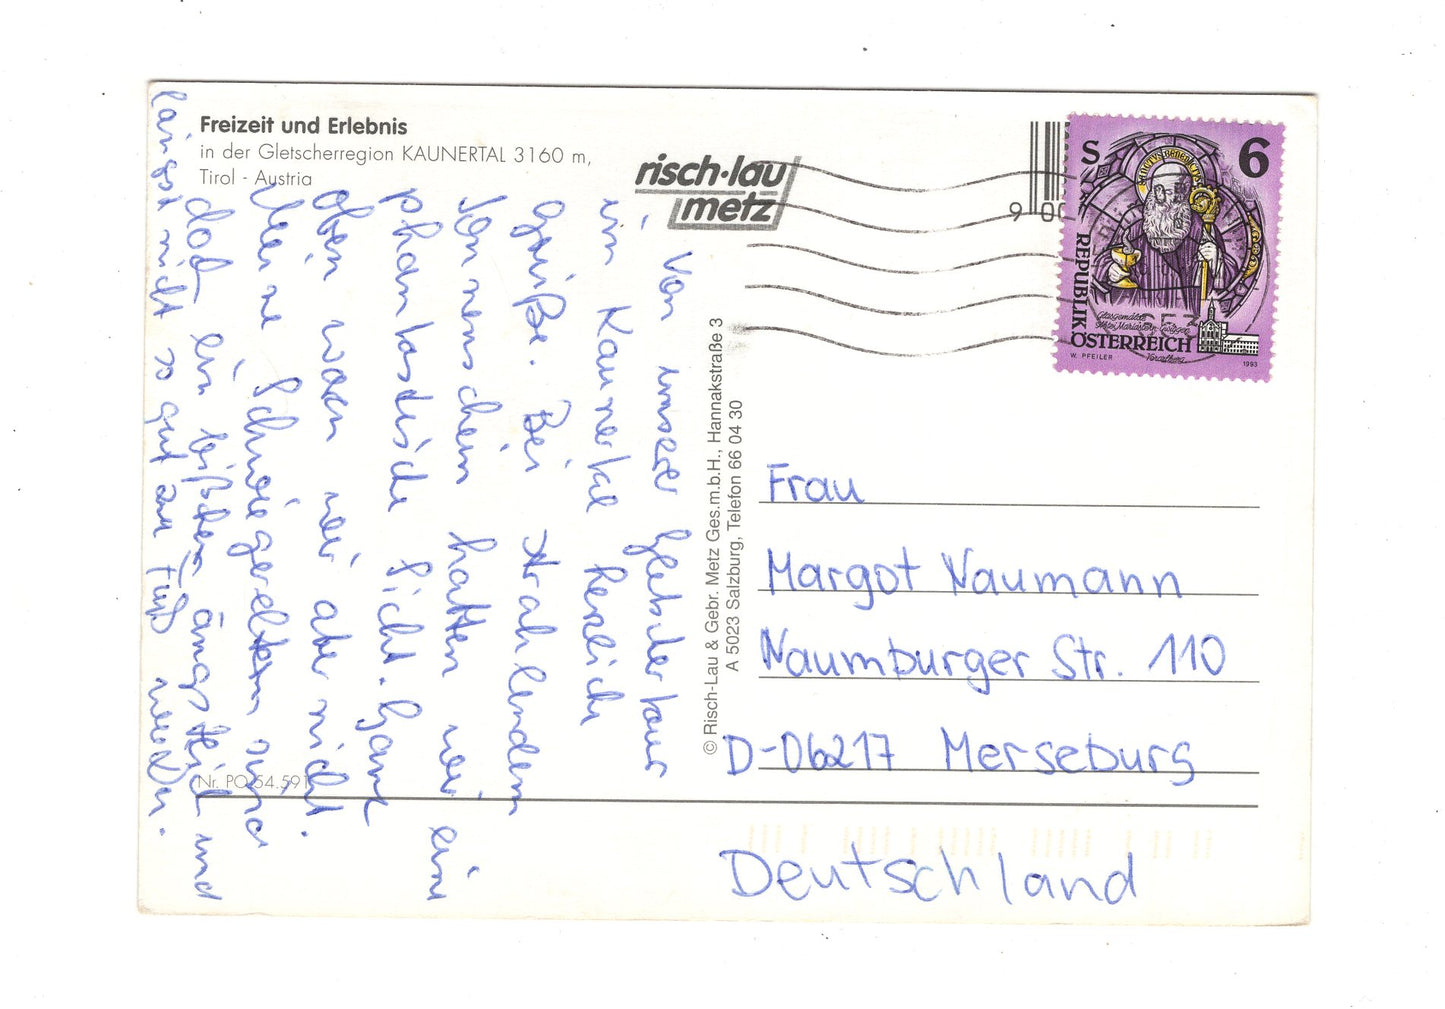 Freizeit und Erlebnis
in der Gletscherregion KAUNERTAL 3160 m,
Tirol - Austria
risch·lau
metz
9 00
S 6
SANCTVS BENEDICTVS
REPUBLIK
ÖSTERREICH
Glasgemälde
Stift Mariastern-Gwiggen
Vorarlberg
W. PFEILER
1993
Von unserer Gletschertour
im Kaunertal herzliche
Grüße. Bei strahlendem
Sonnenschein hatten wir eine
phantastische Sicht. Ganz
oben waren wir aber nicht.
Meine Schwiegereltern sind
doch ein bißchen ängstlich und
längst nicht so gut zu Fuß
© Risch-Lau & Gebr. Metz Ges.m.b.H., Hannakstraße 3
A 5023 Salzburg, Telefon 66 04 30
Frau
Margot Naumann
Naumburger Str. 110
D-06217 Merseburg
Deutschland
Nr. PO 54.591